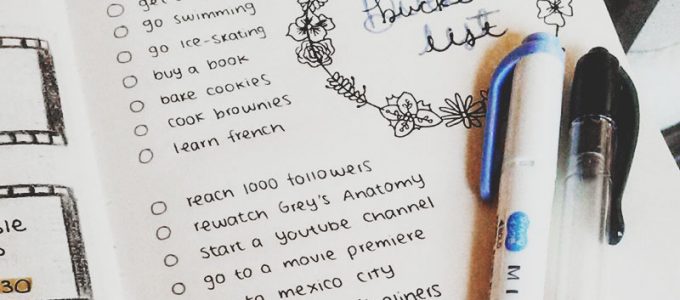 go swimming
go ice-skating
buy a book
bake cookies
cook brownies
learn french
reach 1000 followers
rewatch Grey's Anatomy
start a youtube channel
go to a movie premiere
to mexico city
list
30
MI